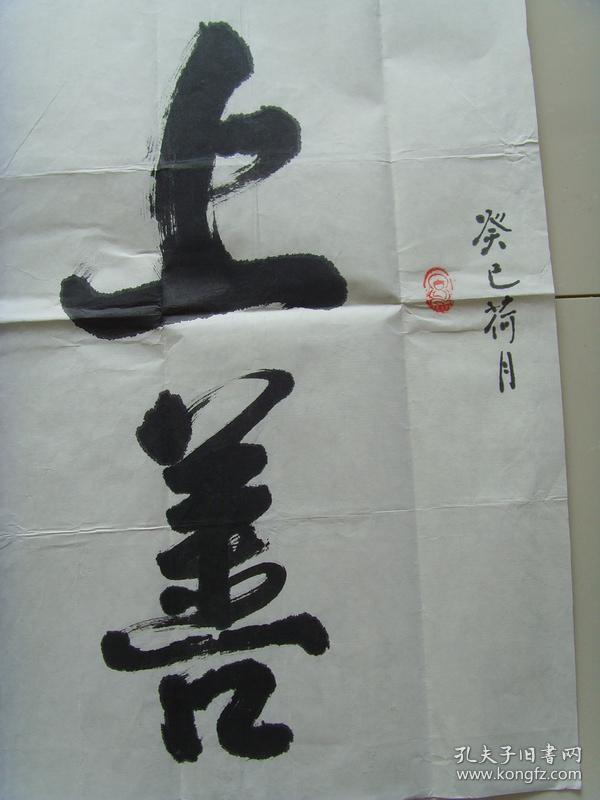 癸巳荷月
上善
孔夫子旧書网
www.kongfz.com